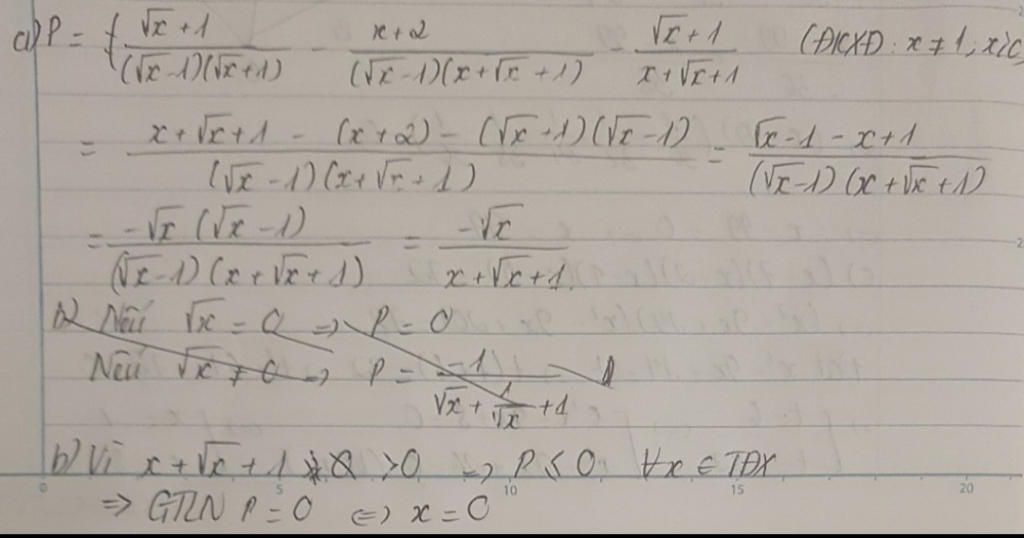 a) P = \frac{\sqrt{x}+1}{(\sqrt{x}-1)(\sqrt{x}+1)} - \frac{x+2}{(\sqrt{x}-1)(x+\sqrt{x}+1)} - \frac{\sqrt{x}+1}{x+\sqrt{x}+1} (ĐKXĐ: x ≠ 1; x ≥ 0
= \frac{x+\sqrt{x}+1-(x+2)-(\sqrt{x}+1)(\sqrt{x}-1)}{(\sqrt{x}-1)(x+\sqrt{x}+1)} = \frac{\sqrt{x}-1-x+1}{(\sqrt{x}-1)(x+\sqrt{x}+1)}
= \frac{-\sqrt{x}(\sqrt{x}-1)}{(\sqrt{x}-1)(x+\sqrt{x}+1)} = \frac{-\sqrt{x}}{x+\sqrt{x}+1}
b) Nếu \sqrt{x} = 0 => P = 0
Nếu \sqrt{x} ≠ 0 => P = \frac{-1}{\sqrt{x}+\frac{1}{\sqrt{x}}+1}
b) Vì x+\sqrt{x}+1 > 0 => P ≤ 0 ∀x ∈ TĐX
=> GTLN P = 0 <=> x = 0
0 5 10 15 20